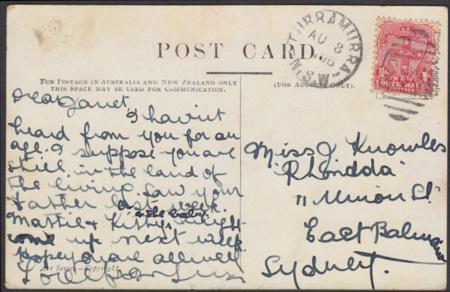 POST CARD.
TURRAMURRA
AU 8
06
N.S.W
FOR POSTAGE IN AUSTRALIA AND NEW ZEALAND ONLY
THIS SPACE MAY BE USED FOR COMMUNICATION.
(FOR ADDRESS ONLY.)
Dear Janet, I havint
heard from you for an
age. I suppose you are
still in the land of
the living. Saw your
father last week.
Mattie & Kitty & the baby might
come up next week.
Hope you are all well
Love from
Art Series—Copyright
Miss J Knowles
Rhondda
11 Union St
East Balmain
Sydney.